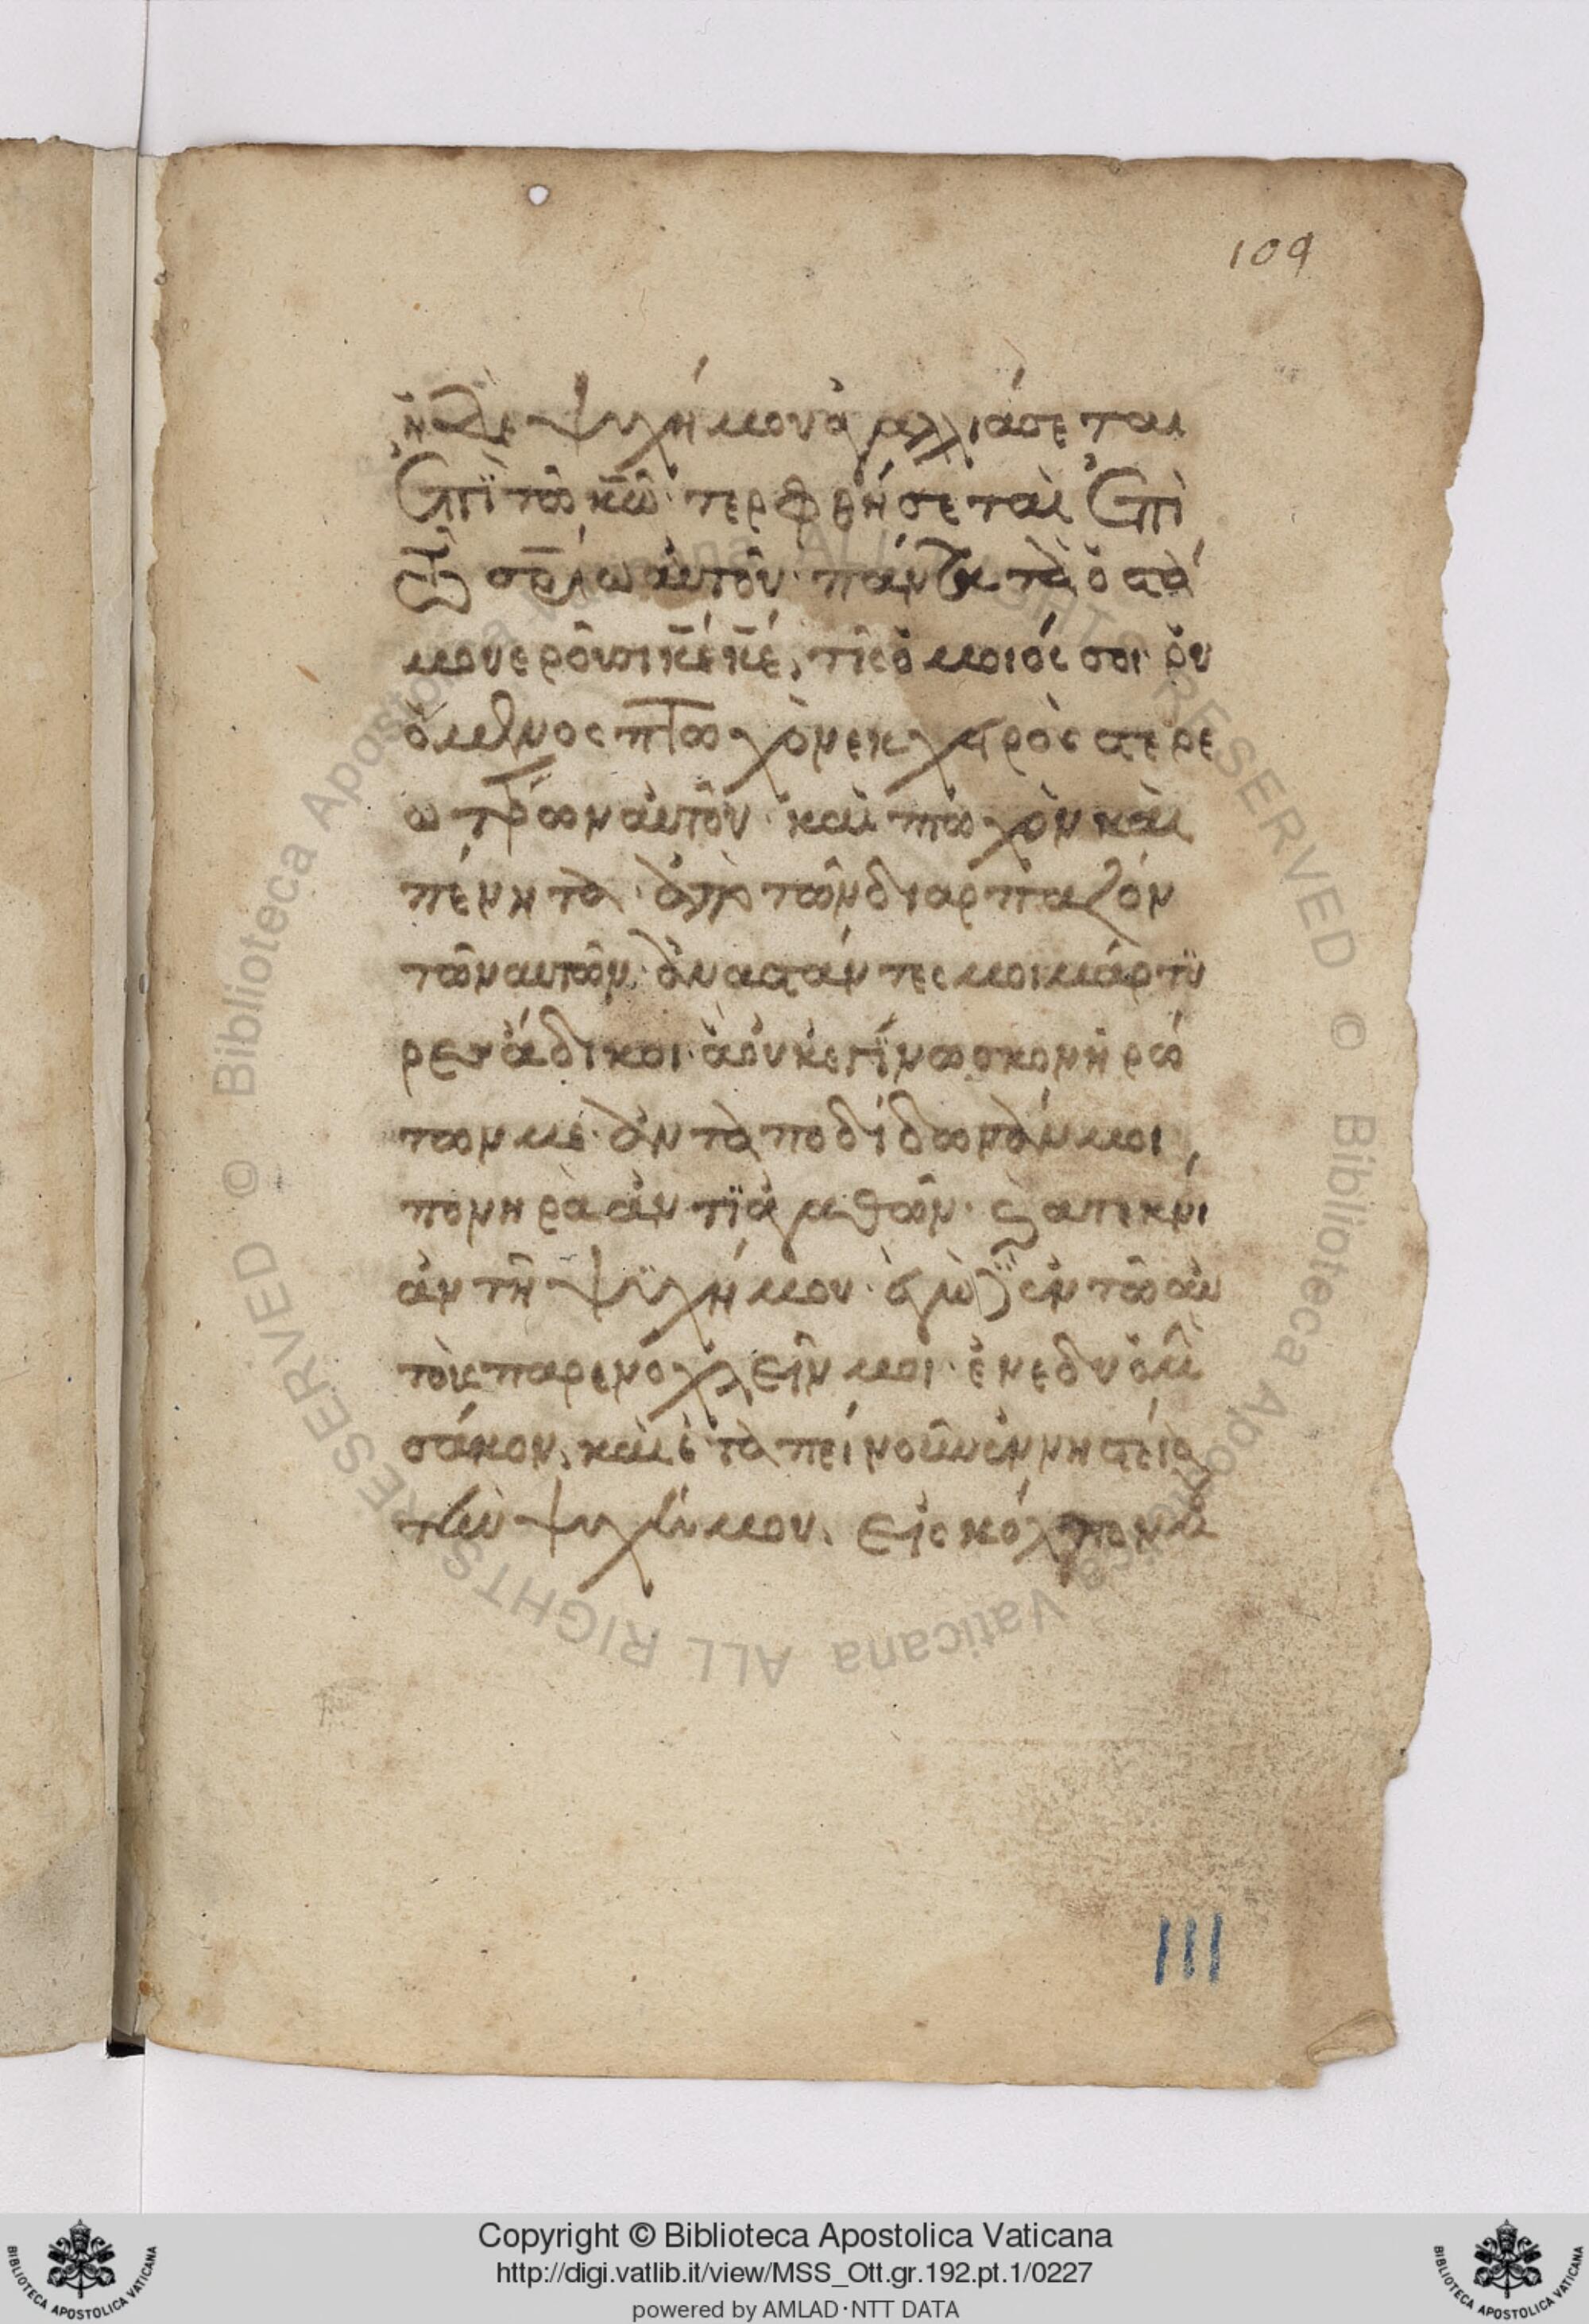 109
ἡ δὲ ψυχή μου ἀγαλλιάσεται
ἐπὶ τῶ κω̅ τερφθήσεται ἐπὶ
τῶ σρ̅ίω αὐτοῦ πάντα τὰ ὀστά
μου ἐροῦσι κ̅ε κ̅ε, τίς ὅμοιός σοι ῥυ
όμενος πτωχὸν ἐκ χειρὸς στερε
ωτέρων αὐτοῦ καὶ πτωχὸν καὶ
πένητα ἀπὸ τῶν διαρπαζόν
των αυτῶν ἀναστάντες μοι μάρτϋ
ρες ἄδικοι ἃ οὐκ ἐγίνωσκον ἠρώ
των με ἀνταπεδίδωσάν μοι,
πονηρὰ ἀντὶ ἀγαθῶν ϛ ατεκνί
αν τῆ ψυχή μου ἐγὼ δὲ ἐν τῶ αὐ
τοὺς παρενοχλεῖν μοι ἐνεδυόμ
σάκον, καὶ ἐταπείνουν ἐν νηστεία
τὴν ψυχήν μου. εἰς κόλπον μ
III
Copyright © Biblioteca Apostolica Vaticana
http://digi.vatlib.it/view/MSS_Ott.gr.192.pt.1/0227
powered by AMLAD·NTT DATA
BIBLIOTECA APOSTOLICA VATICANA
BIBLIOTECA APOSTOLICA VATICANA
© Biblioteca Apostolica Vaticana ALL RIGHTS RESERVED
© Biblioteca Apostolica Vaticana ALL RIGHTS RESERVED